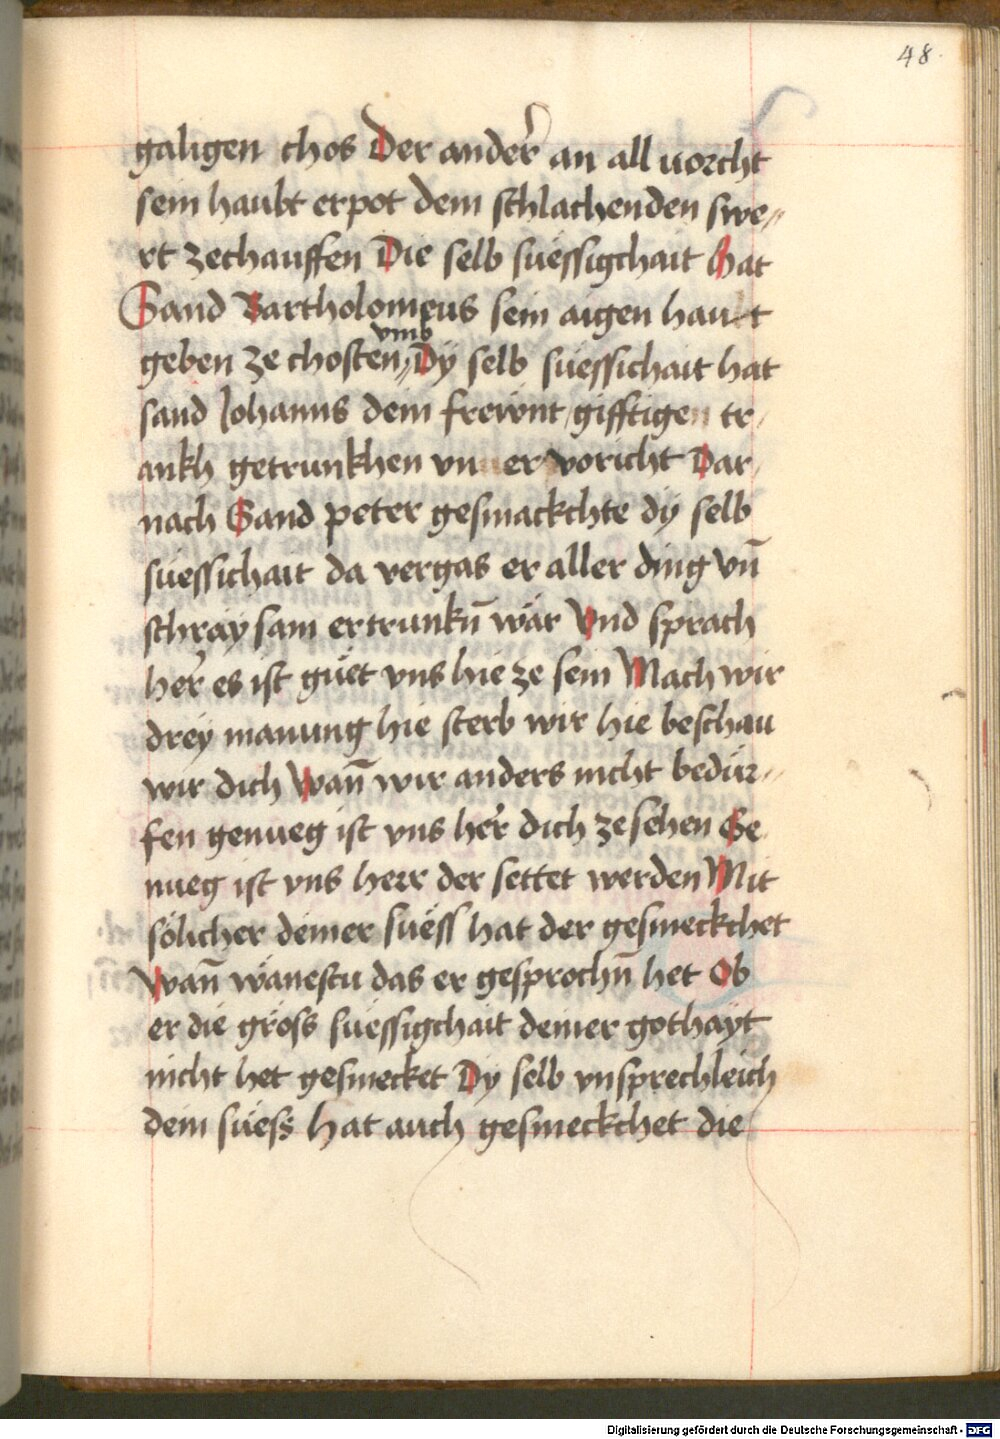 48.
galigen chos Der ander̉ an all uorcht
sein haubt erpot dem schlachenden swe„
rt zechauffen Die selb süessigchait Hat
Sand Bartholomeus sein aigen haut
vmb
geben ze chosten„ Dy selb süessichait hat
sand Johanns dem frewnt gifftigen tr„
ankh getrunkhen vn er voricht Dar„
nach Sand peter gesmackchte dy selb
süessichait da vergas er aller ding vn̄
schray sam ertrunkn̄ wär Vnd sprach
her̉ es ist güet vns hie ze sein Mach wir
drey manung hie sterb wir hie beschau
wir dich Wan̄ wir anders nicht bedür„
fen genueg ist vns her̉ dich ze sehen Ge
nueg ist vns herr der settet werden Mit
sölicher deiner süess hat der gesmeckchet
Wan̄ wänestu das er gesprochn̄ het Ob
er die gröss süessigchait deiner gothayt
nicht het gesmecket Dy selb vnsprechleich
dein süess hat auch gesmeckchet die
Digitalisierung gefördert durch die Deutsche Forschungsgemeinschaft - DFG